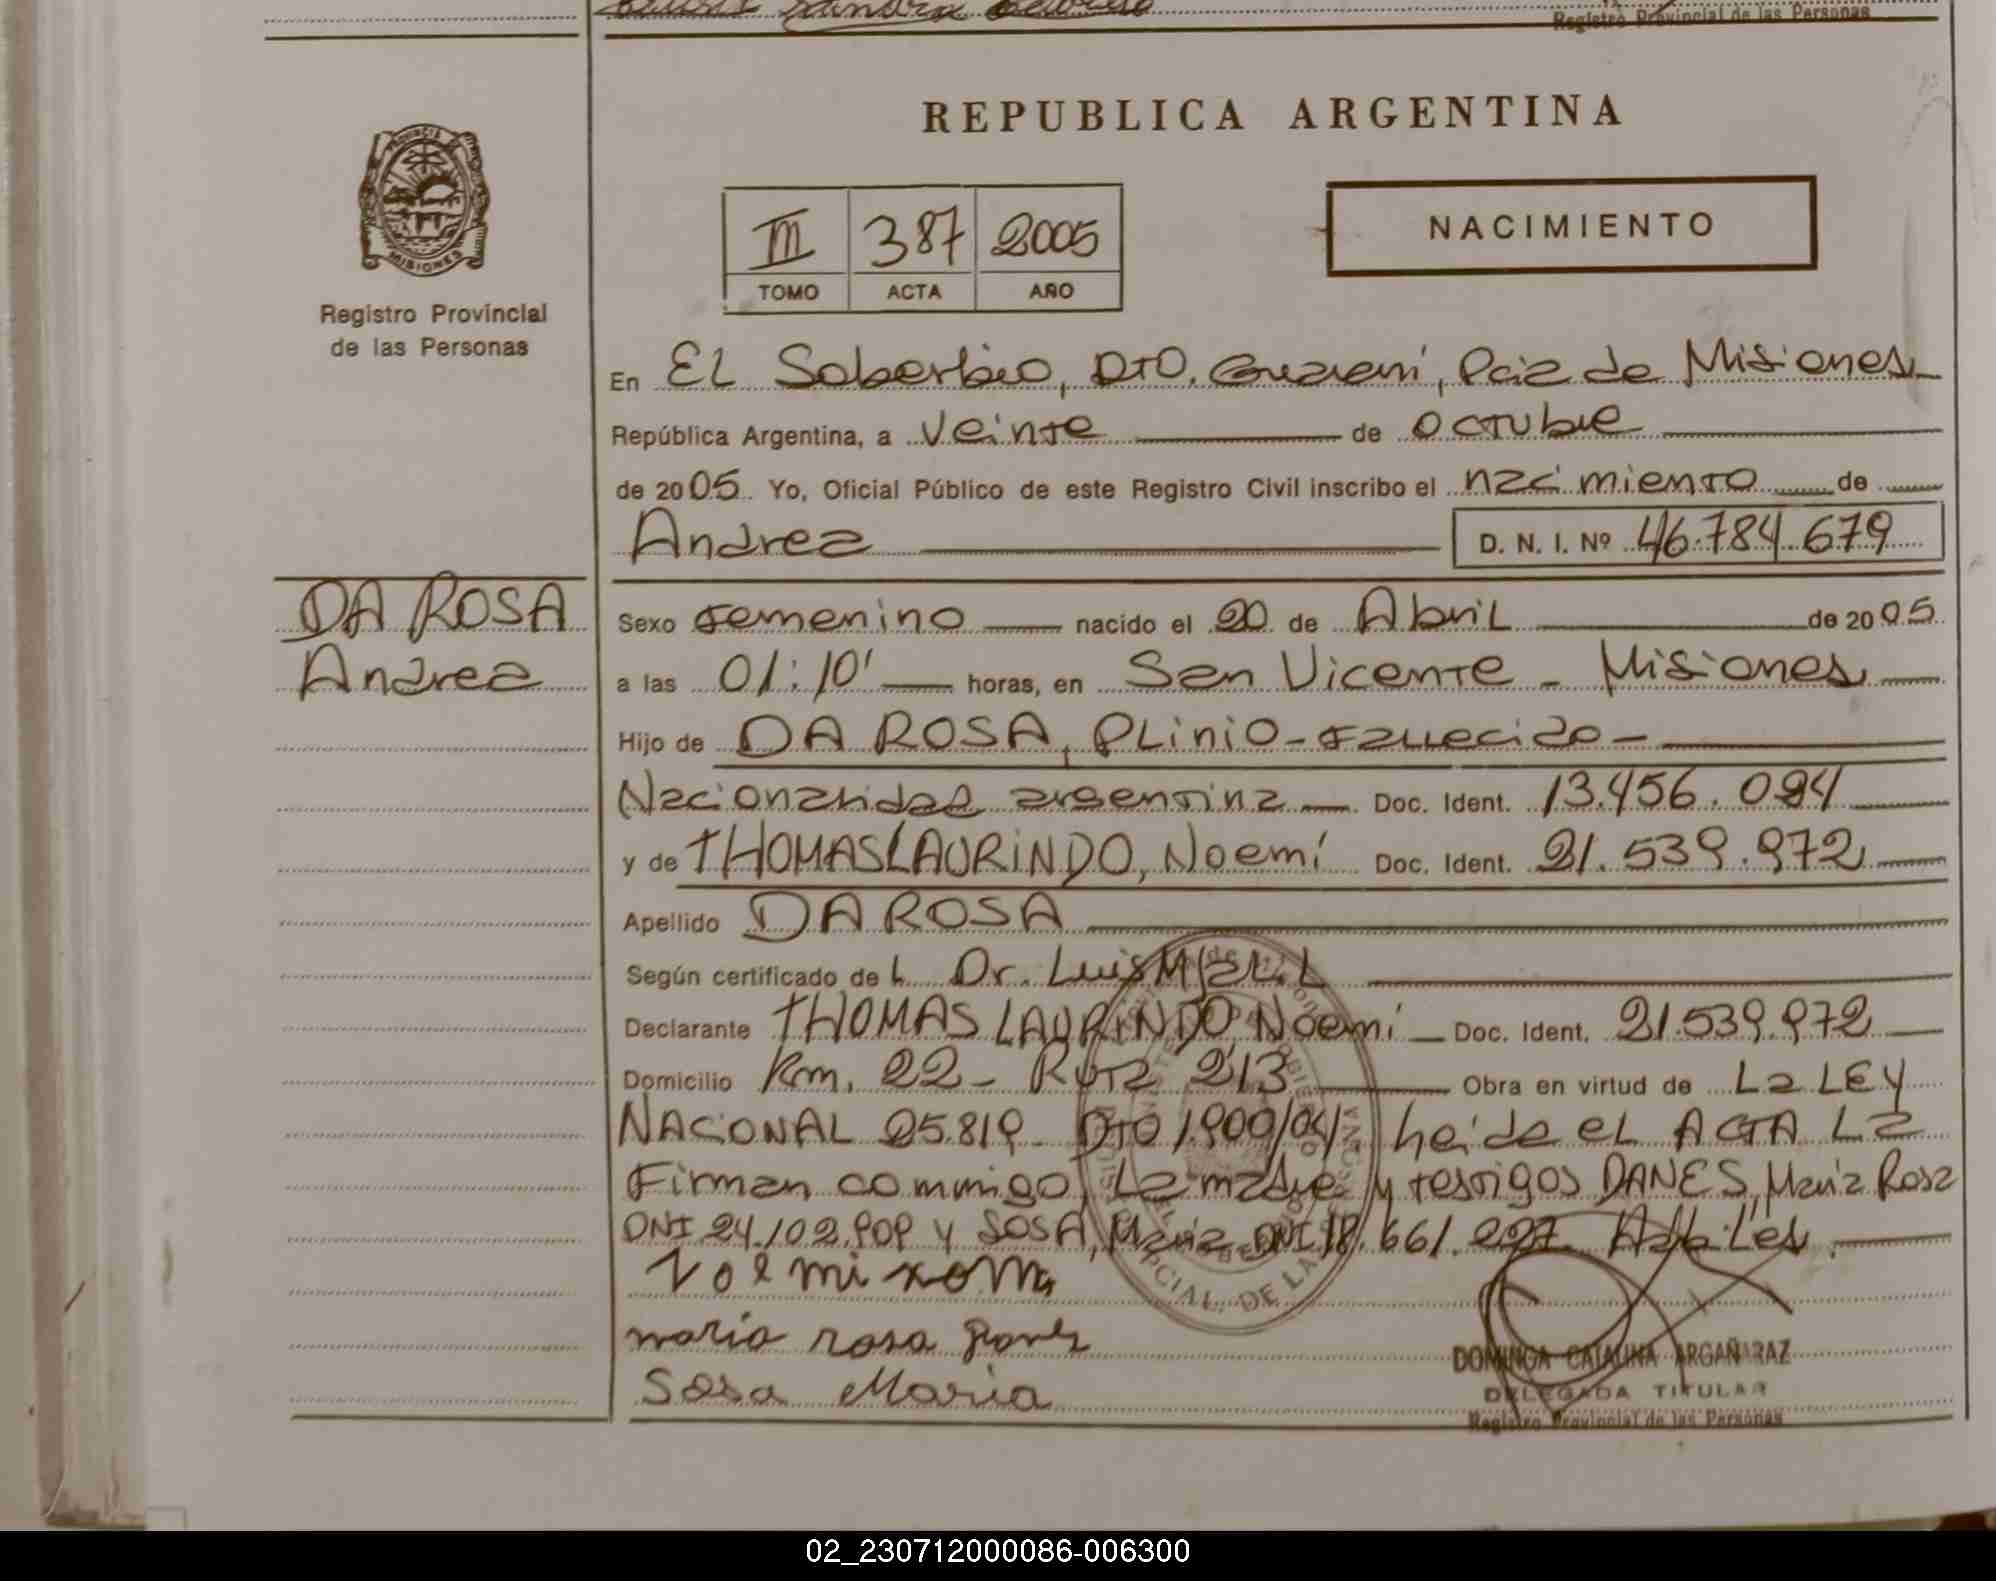 Sandra
Registro Provincial de las Personas
REPUBLICA ARGENTINA
PROVINCIA
MISIONES
III 387 2005
TOMO ACTA AÑO
NACIMIENTO
Registro Provincial
de las Personas
En EL Soberbio, DTO. Guarani, Pcia de Misiones
República Argentina, a veinte de octubre
de 2005. Yo, Oficial Público de este Registro Civil inscribo el nacimiento de
Andrea D. N. I. Nº 46.784.679
DA ROSA
Andrea
Sexo femenino nacido el 20 de Abril de 2005.
a las 01:10' horas, en San Vicente - Misiones
Hijo de DA ROSA, PLinio - fallecido -
Nacionalidad argentina Doc. Ident. 13.456.094
y de THOMAS LAURINDO, Noemí Doc. Ident. 21.539.972
Apellido DA ROSA
Según certificado de L Dr. Luis
Declarante THOMAS LAURINDO, Noemí Doc. Ident. 21.539.972
Domicilio Km. 22 - Ruta 213 Obra en virtud de La LEY
NACIONAL 25.819 - DTO 1.900/04/ heida el ACTA La
Firman conmigo, La madre y testigos DANES, Maria Rosa
DNI 24.102.909 y SOSA, Maria DNI 18.661.227. Hábiles.
maria rosa
Sosa Maria
DOMINGA CATALINA ARGAÑARAZ
DELEGADA TITULAR
Registro Provincial de las Personas
02_230712000086-006300